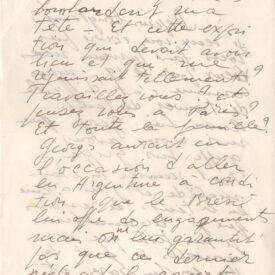 tête - Et cette exposi
tion qui devait avoir
lieu et qui me
réjouissait tellement ?
Travaillez vous ? et
pensez vous à Paris ?
Et toute la famille ?
Georges aurait eu
l'occasion d'aller
en Argentine à condi
tion que le Brésil
lui offre des engagements
mais on ne leur garantit
pas que ce dernier